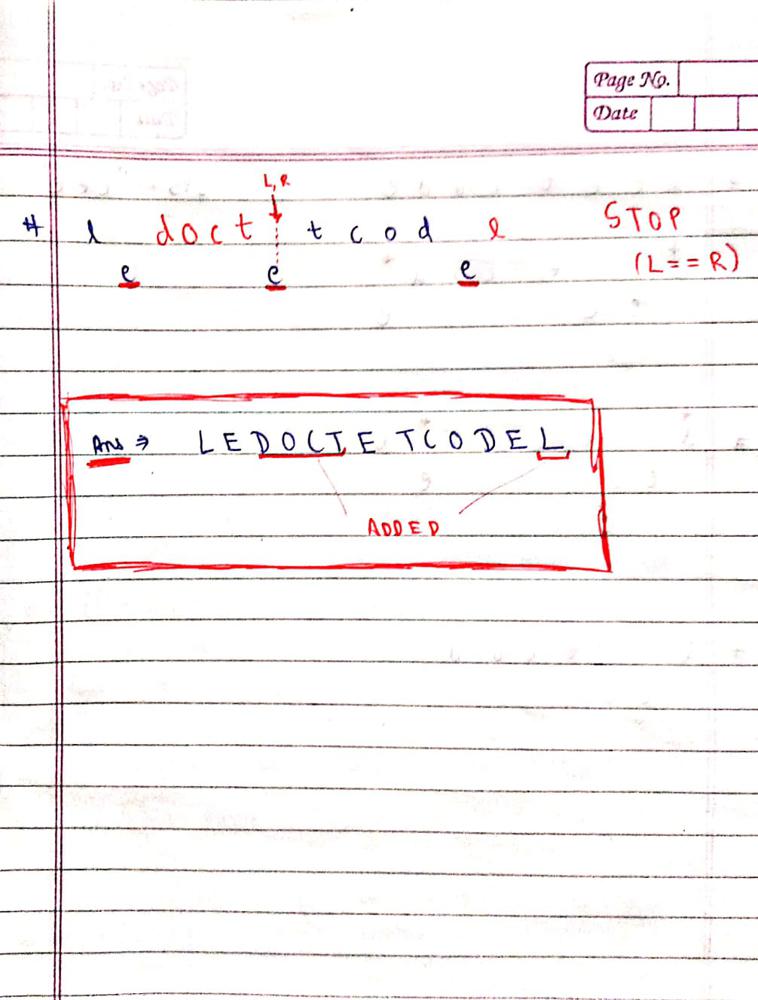 Page No.
Date
L, R
# l d o c t t c o d l STOP
e e e (L == R)
Ans ⇒ LEDOCTETCODEL
ADDED